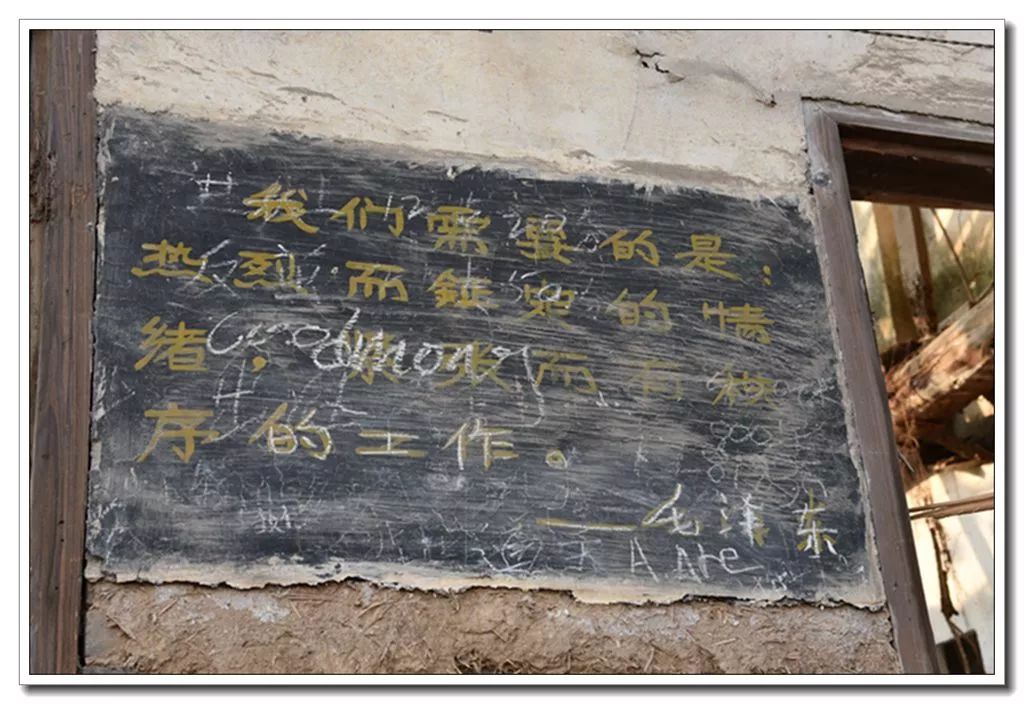 我们需要的是:
热烈而镇定的情
绪,紧张而有秩
序的工作。
——毛泽东
A. Are